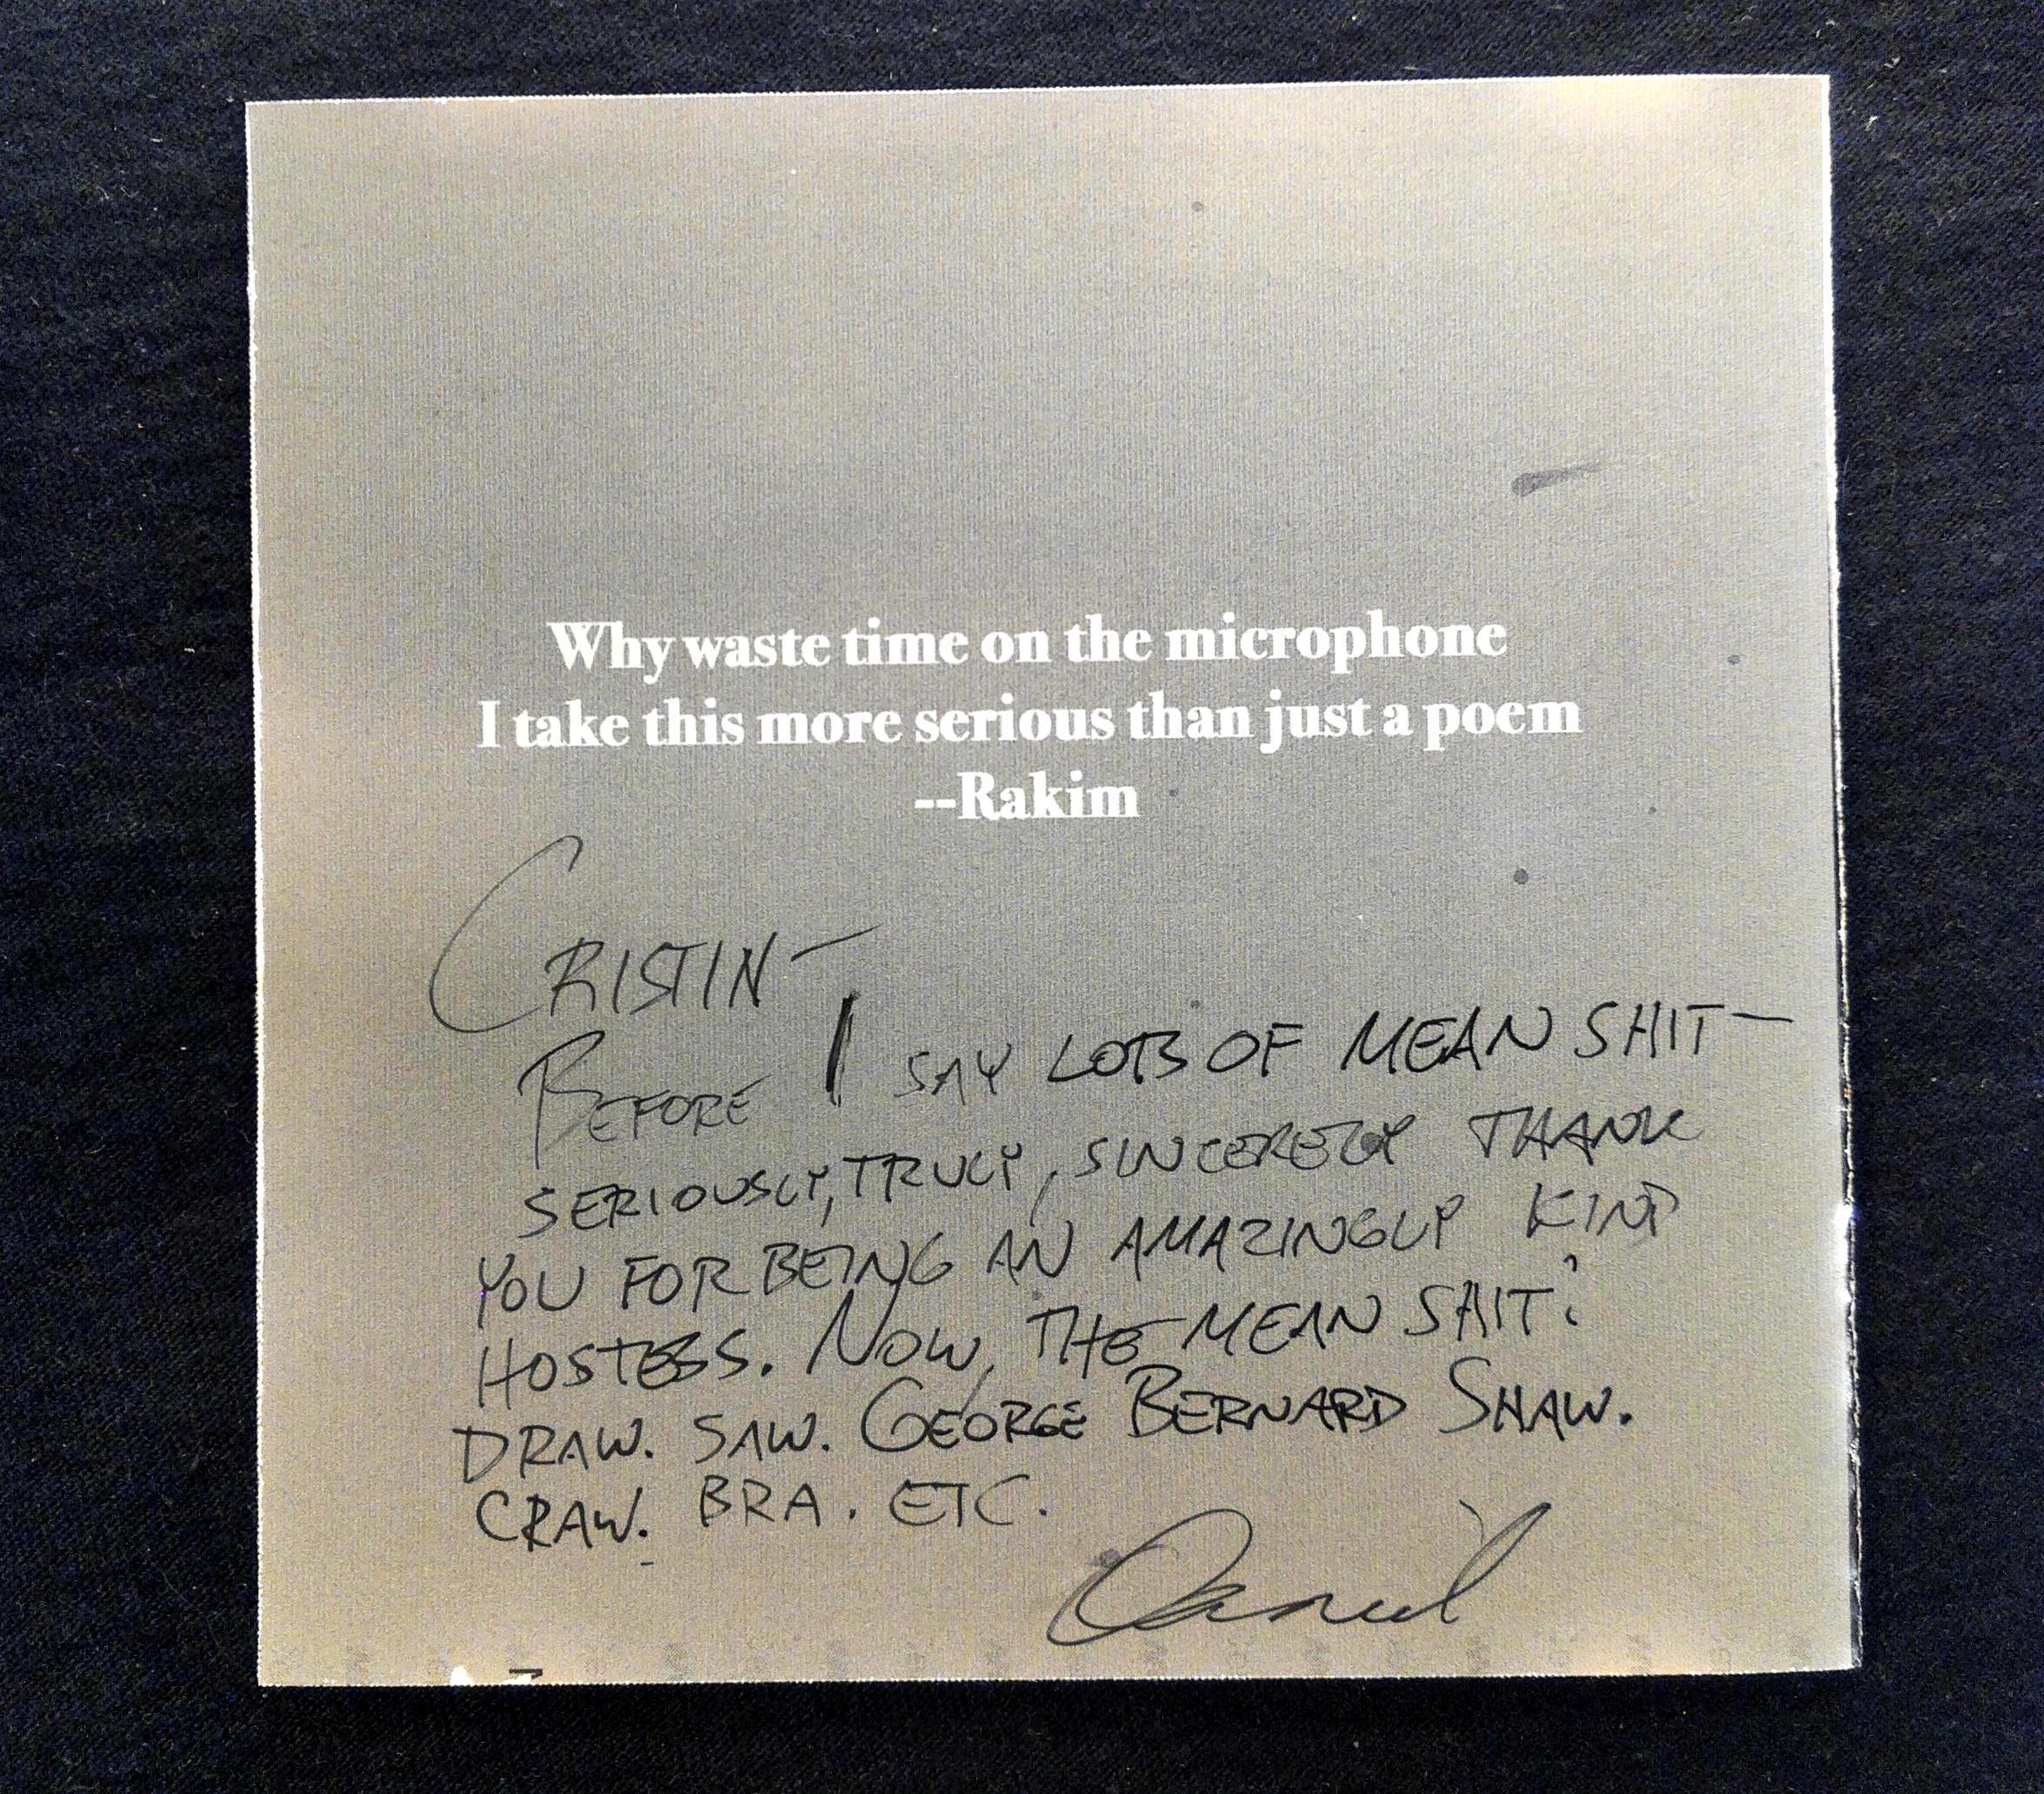 Why waste time on the microphone
I take this more serious than just a poem
--Rakim
CRISTIN—
BEFORE I SAY LOTS OF MEAN SHIT—
SERIOUSLY, TRULY, SINCERELY THANK
YOU FOR BEING AN AMAZINGLY KIND
HOSTESS. NOW, THE MEAN SHIT:
DRAW. SAW. GEORGE BERNARD SHAW.
CRAW. BRA. ETC.
Daniel